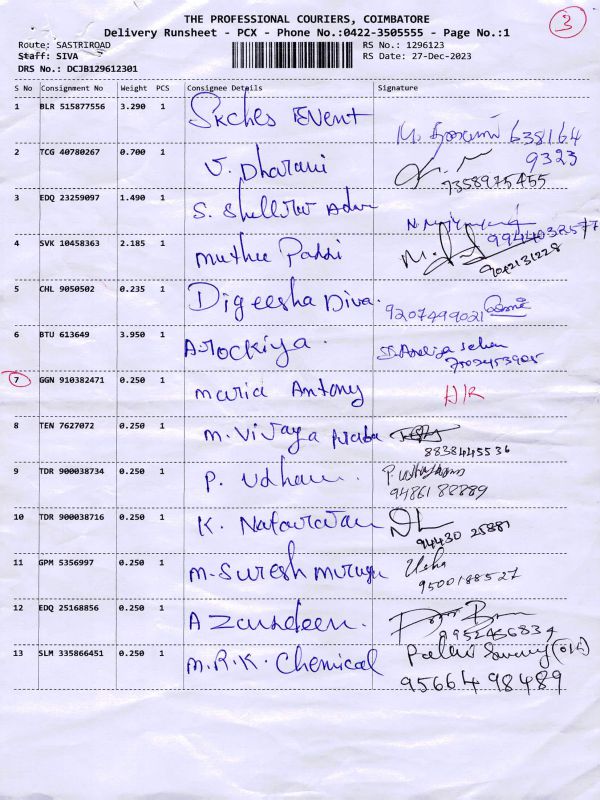 3
THE PROFESSIONAL COURIERS, COIMBATORE
Delivery Runsheet - PCX - Phone No.:0422-3505555 - Page No.:1
Route: SASTRIROAD RS No.: 1296123
Staff: SIVA RS Date: 27-Dec-2023
DRS No.: DCJB129612301
S No Consignment No Weight PCS Consignee Details Signature
1 BLR 515877556 3.290 1 EVENT 638164
9323
2 TCG 40780267 0.700 1 V. Dharani
7358975455
3 EDQ 23259097 1.490 1 S.
9944038577
4 SVK 10458363 2.185 1 Muthu M.
9042131228
5 CHL 9050502 0.235 1 Digeesha Diva. 9207499021
6 BTU 613649 3.950 1 Arockiya.
7 GGN 910382471 0.250 1 Maria Antony
8 TEN 7627072 0.250 1 M. Vijaya
8838445536
9 TDR 900038734 0.250 1 P. Udham
9486188889
10 TDR 900038716 0.250 1 K. Natarajan
94430 25881
11 GPM 5356997 0.250 1 M. Suresh Usha
9500188527
12 EDQ 25168856 0.250 1
13 SLM 335866451 0.250 1 M.R.K. Chemical
95664 98489